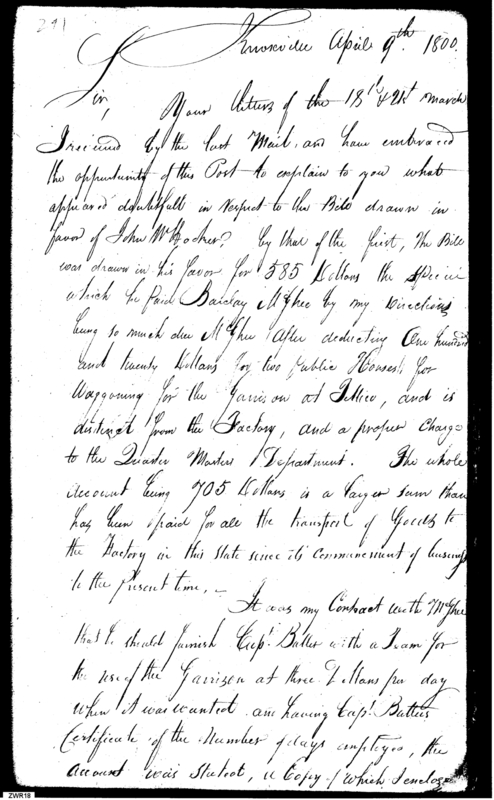 291
Knoxville April 9th. 1800.
Sir,
Your letters of the 18th & 21st March
I received by the last Mail, and have embraced
the oppertunity of this Post to explain to you what
appeared doubtfull in respect to the Bill drawn in
favor of John W Hooker? by that of the first, The Bill
was drawn in his favor for 585 Dollars the Specie
which he paid Barclay McGhee by my Directions
being so much due McGhee after deducting One hundred
and twenty Dollars for two public Horses, for
Waggoning for the Garrison at Tellico, and is
distinct from the Factory, and a proper Charge
to the Quarter Masters Department. The whole
Account being 705 Dollars is a larger sum than
has been paid for all the transport of Goods to
the Factory in this State since its commencement of business
to the Present time. –
It was my Contract with McGhee
that I should furnish Capt. Butler with a Team for
the use of the Garrison at three Dollars per day
when it was wanted and having Capt. Butlers
Certificate of the Number of days employed, the
Account was Stated, a Copy of which I enclose
ZWR18